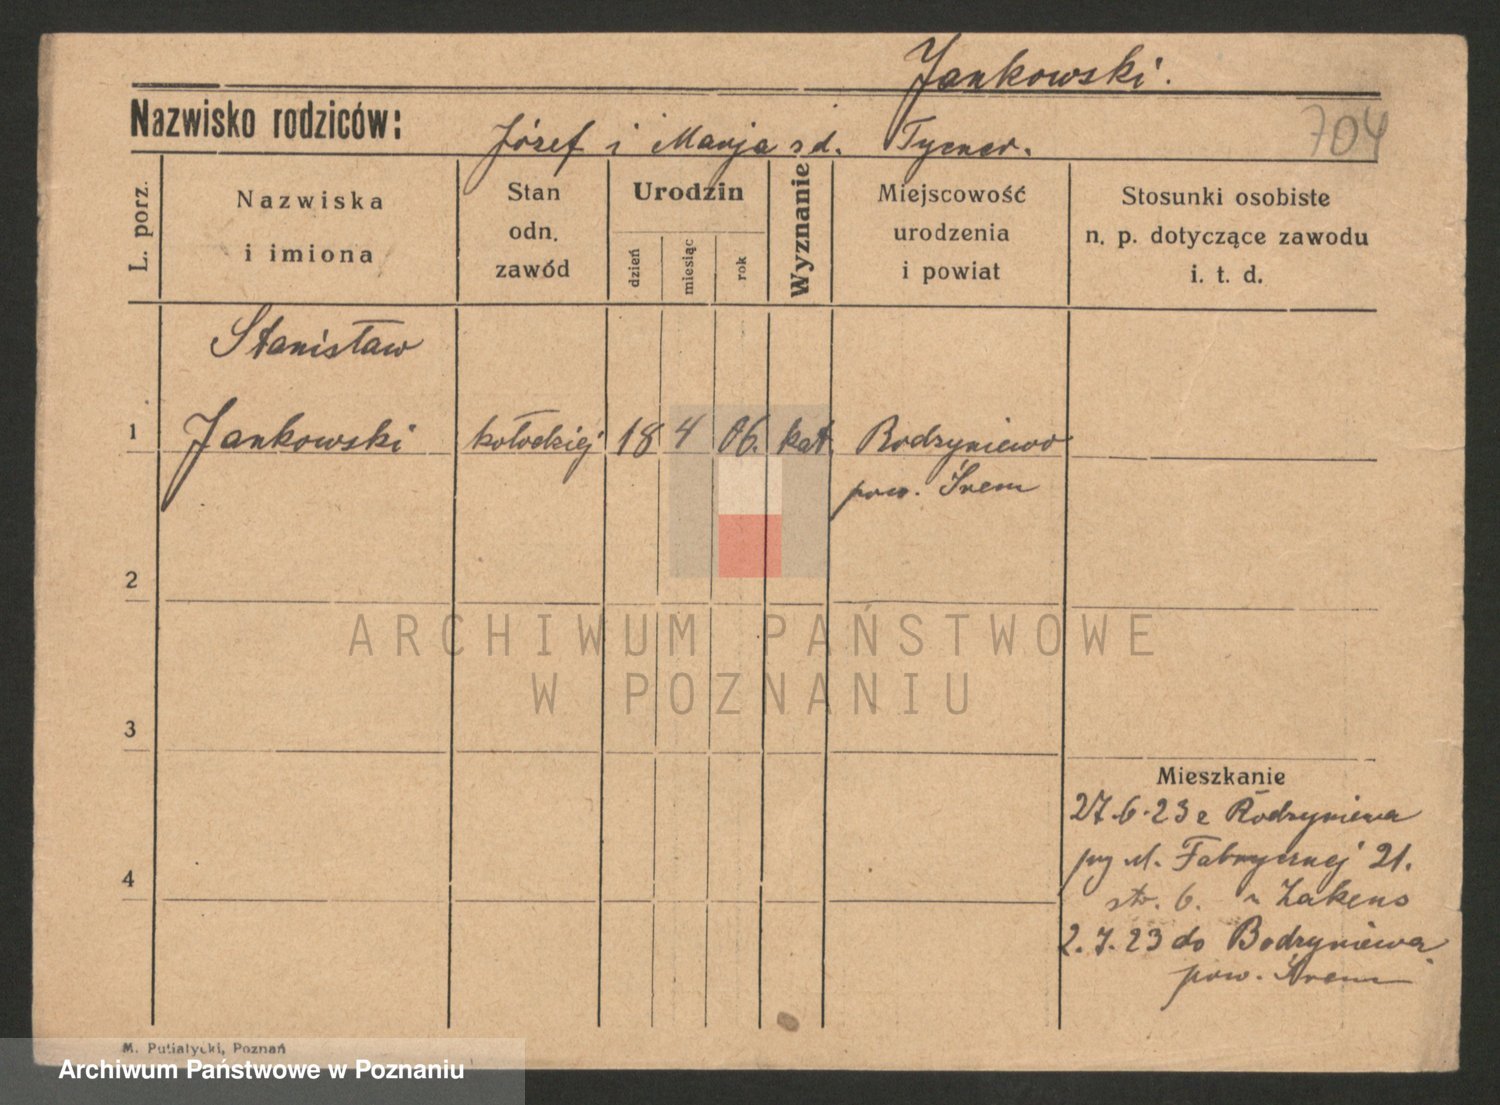 Jankowski.
Nazwisko rodziców: Józef i Marja zd. Tycner.
704
L. porz.
Nazwiska
i imiona
Stan
odn.
zawód
Urodzin
dzień
miesiąc
rok
Wyznanie
Miejscowość
urodzenia
i powiat
Stosunki osobiste
n. p. dotyczące zawodu
i. t. d.
Stanisław
1 Jankowski kołodziej 18 4 06. kat. Bodzyniewo
pow. Śrem
2
3
4
Mieszkanie
27.6.23 z Bodzyniewa
przy ul. Fabrycznej 21.
str. 6. u
2.7.23 do Bodzyniewa
pow. Śrem
ARCHIWUM PAŃSTWOWE
W POZNANIU
M. Putiatycki, Poznań
Archiwum Państwowe w Poznaniu